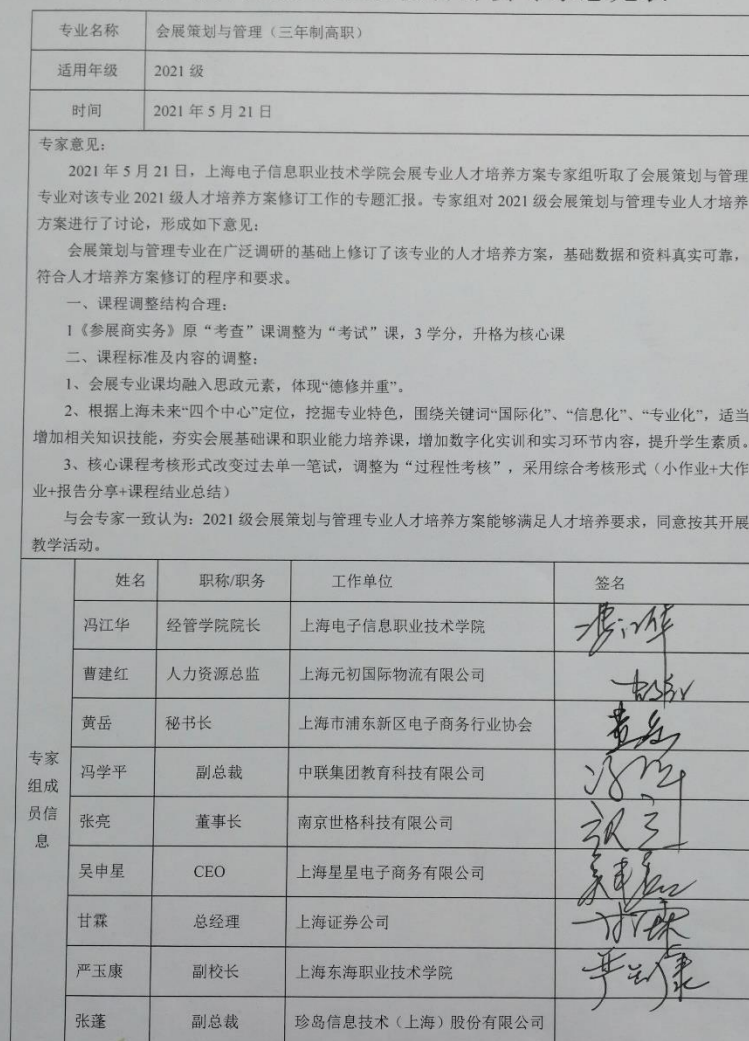 专业名称 会展策划与管理（三年制高职）
适用年级 2021 级
时间 2021 年 5 月 21 日
专家意见：
2021 年 5 月 21 日，上海电子信息职业技术学院会展专业人才培养方案专家组听取了会展策划与管理
专业对该专业 2021 级人才培养方案修订工作的专题汇报。专家组对 2021 级会展策划与管理专业人才培养
方案进行了讨论，形成如下意见：
会展策划与管理专业在广泛调研的基础上修订了该专业的人才培养方案，基础数据和资料真实可靠，
符合人才培养方案修订的程序和要求。
一、课程调整结构合理：
1《参展商实务》原“考查”课调整为“考试”课，3 学分，升格为核心课
二、课程标准及内容的调整：
1、会展专业课均融入思政元素，体现“德修并重”。
2、根据上海未来“四个中心”定位，挖掘专业特色，围绕关键词“国际化”、“信息化”、“专业化”，适当
增加相关知识技能，夯实会展基础课和职业能力培养课，增加数字化实训和实习环节内容，提升学生素质。
3、核心课程考核形式改变过去单一笔试，调整为“过程性考核”，采用综合考核形式（小作业+大作
业+报告分享+课程结业总结）
与会专家一致认为：2021 级会展策划与管理专业人才培养方案能够满足人才培养要求，同意按其开展
教学活动。
专家组成员信息
姓名 职称/职务 工作单位 签名
冯江华 经管学院院长 上海电子信息职业技术学院 冯江华
曹建红 人力资源总监 上海元初国际物流有限公司
黄岳 秘书长 上海市浦东新区电子商务行业协会 黄岳
冯学平 副总裁 中联集团教育科技有限公司
张亮 董事长 南京世格科技有限公司
吴申星 CEO 上海星星电子商务有限公司
甘霖 总经理 上海证券公司 甘霖
严玉康 副校长 上海东海职业技术学院 严玉康
张蓬 副总裁 珍岛信息技术（上海）股份有限公司